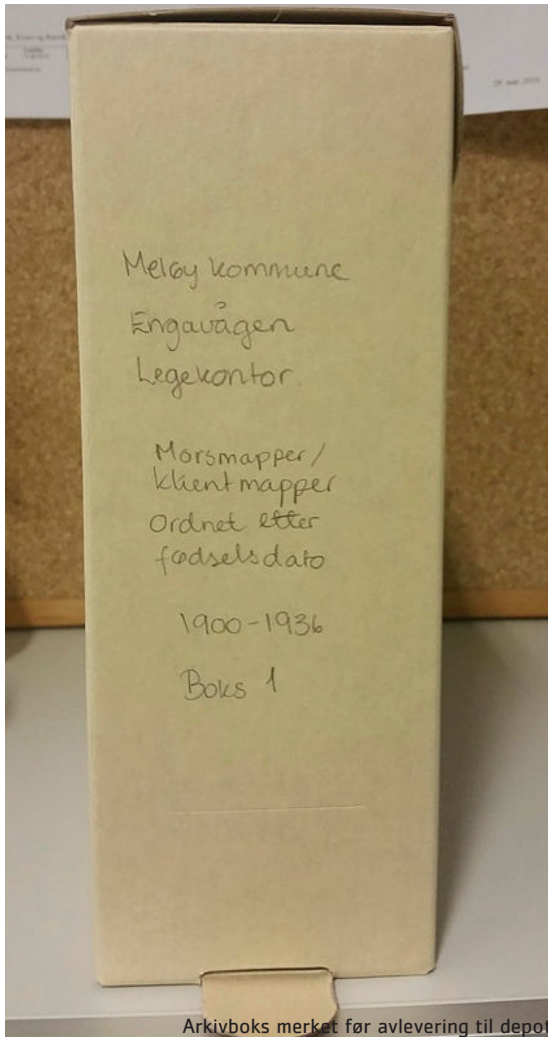 Meløy kommune
Engavågen
Legekontor.
Morsmapper/
klientmapper
Ordnet etter
fødselsdato
1900-1936
Boks 1
Arkivboks merket før avlevering til depot